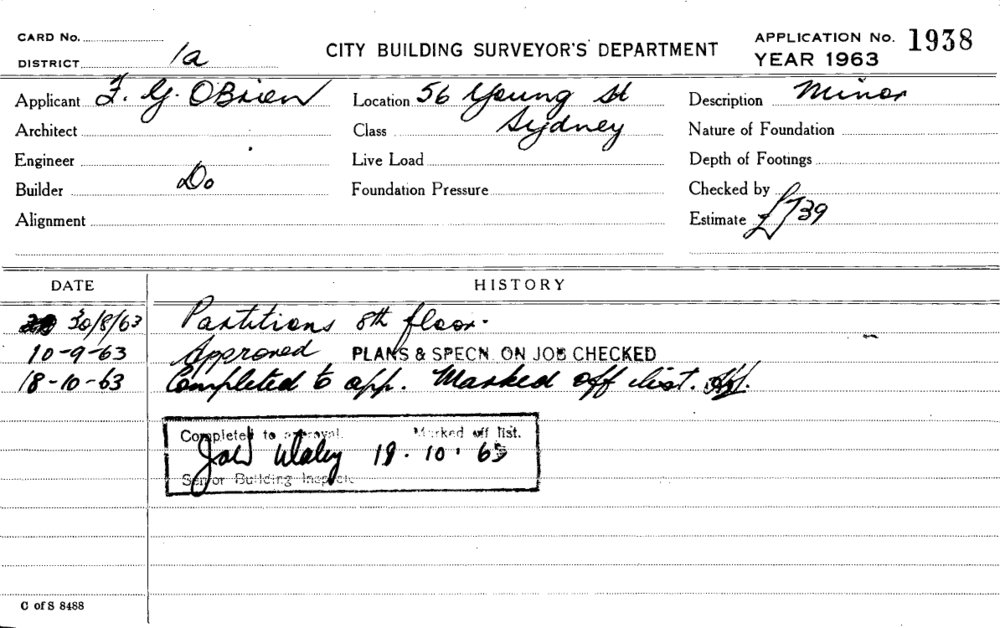 CARD No.
DISTRICT 1a
CITY BUILDING SURVEYOR'S DEPARTMENT
APPLICATION No. 1938
YEAR 1963
Applicant F. G. OBrien
Location 56 Young St
Sydney
Description Minor
Architect
Class
Nature of Foundation
Engineer
Live Load
Depth of Footings
Builder Do
Foundation Pressure
Checked by
Alignment
Estimate £739
DATE
HISTORY
30/8/63 Partitions 8th floor.
10-9-63 Approved PLANS & SPECN. ON JOB CHECKED
18-10-63 Completed to app. Marked off list.
Completed to approval. Marked off list.
18.10.63
Senior Building Inspector
C of S 8488